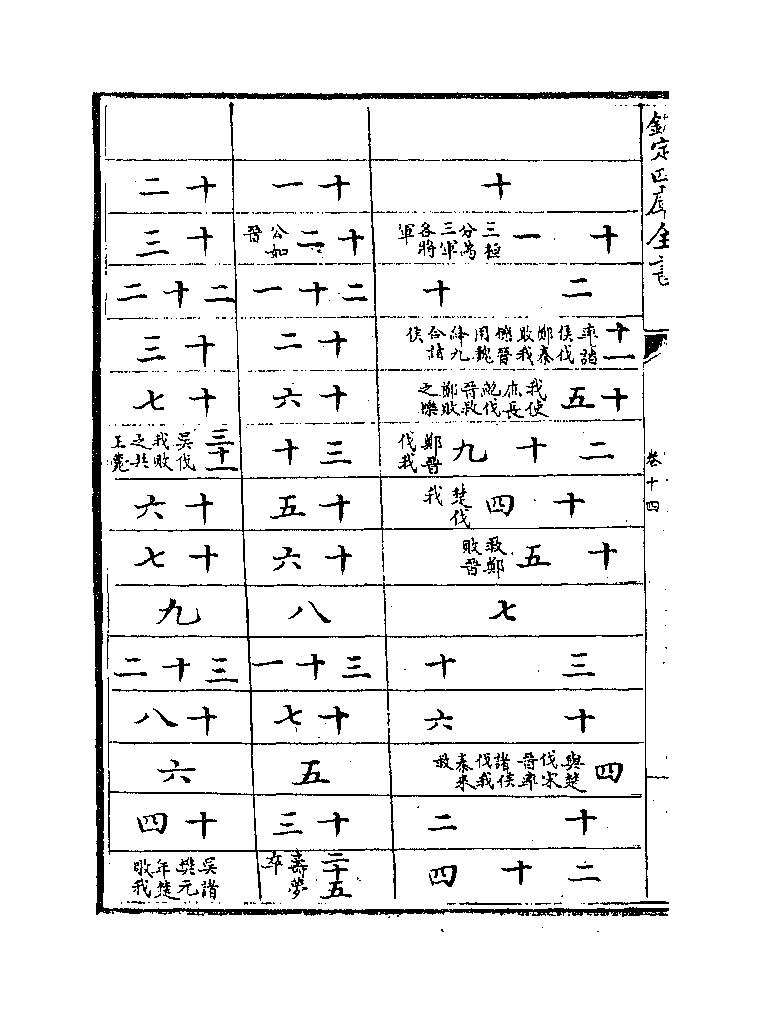 欽定四庫全書
卷十四
十
十一 三桓分為三軍各將軍
二十
十一 率諸侯伐鄭秦敗我櫟晉用魏絳九合諸侯
十五 我使庶長鮑伐晉救鄭敗之櫟
二十九 鄭晉伐我
十四 楚伐我
十五 救鄭敗晉
七
三十
十六
四 與楚伐宋晉率諸侯伐我秦來救
十二
二十四
十一
十二 公如晉
二十一
十二
十六
三十
十五
十六
八
三十一
十七
五
十三
二十五 壽夢卒
十二
十三
二十二
十三
十七
三十一 吳伐我敗之共王薨
十六
十七
九
三十二
十八
六
十四
吳諸樊元年楚敗我